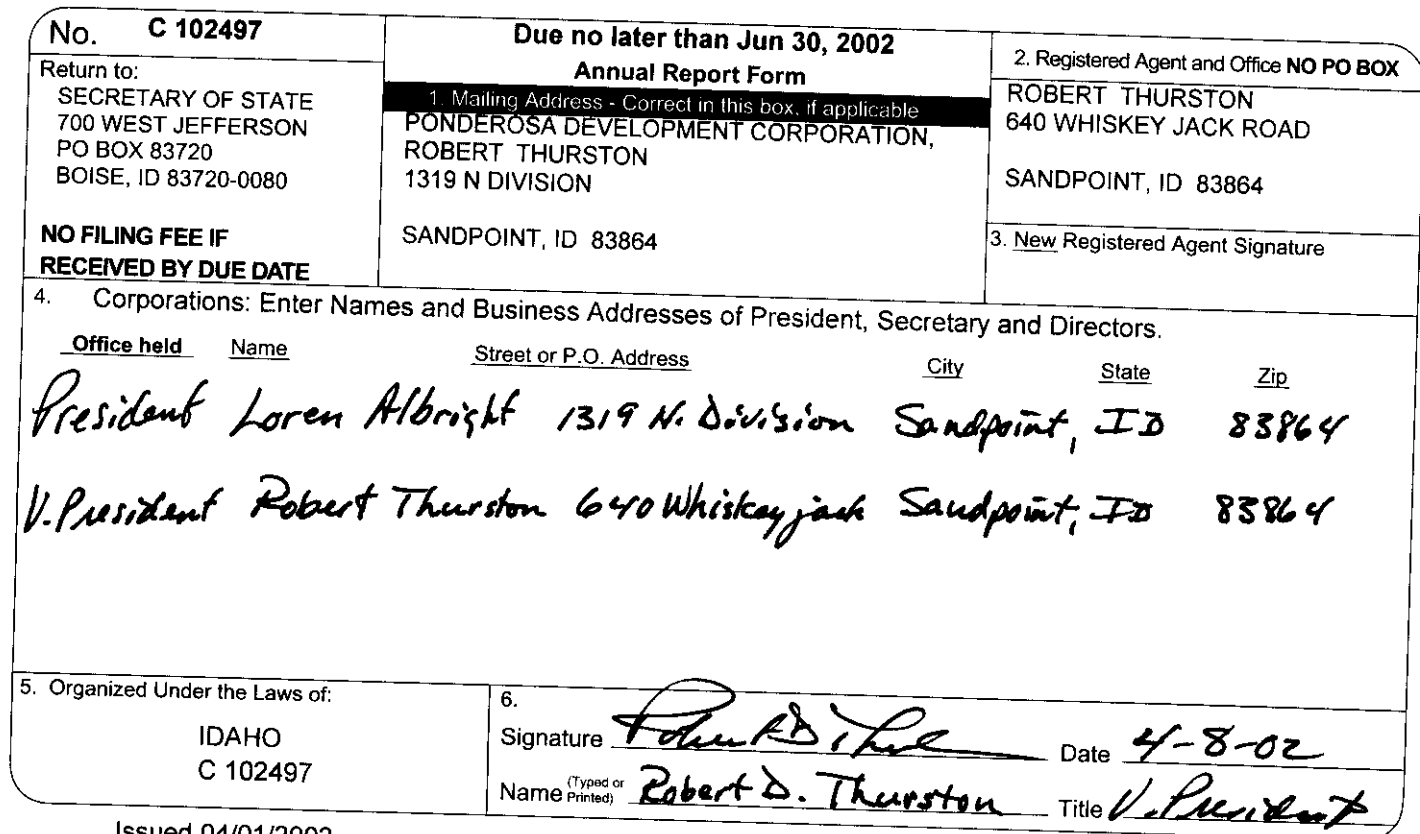 No. C 102497
Return to:
SECRETARY OF STATE
700 WEST JEFFERSON
PO BOX 83720
BOISE, ID 83720-0080
NO FILING FEE IF
RECEIVED BY DUE DATE
Due no later than Jun 30, 2002
Annual Report Form
1. Mailing Address - Correct in this box, if applicable
PONDEROSA DEVELOPMENT CORPORATION,
ROBERT THURSTON
1319 N DIVISION
SANDPOINT, ID 83864
2. Registered Agent and Office NO PO BOX
ROBERT THURSTON
640 WHISKEY JACK ROAD
SANDPOINT, ID 83864
3. New Registered Agent Signature
4. Corporations: Enter Names and Business Addresses of President, Secretary and Directors.
Office held Name Street or P.O. Address City State Zip
President Loren Albright 1319 N. Division Sandpoint, ID 83864
V. President Robert Thurston 640 Whiskeyjack Sandpoint, ID 83864
5. Organized Under the Laws of:
IDAHO
C 102497
6.
Signature Date 4-8-02
Name (Typed or Printed) Robert D. Thurston Title V. President
Issued 04/01/2002